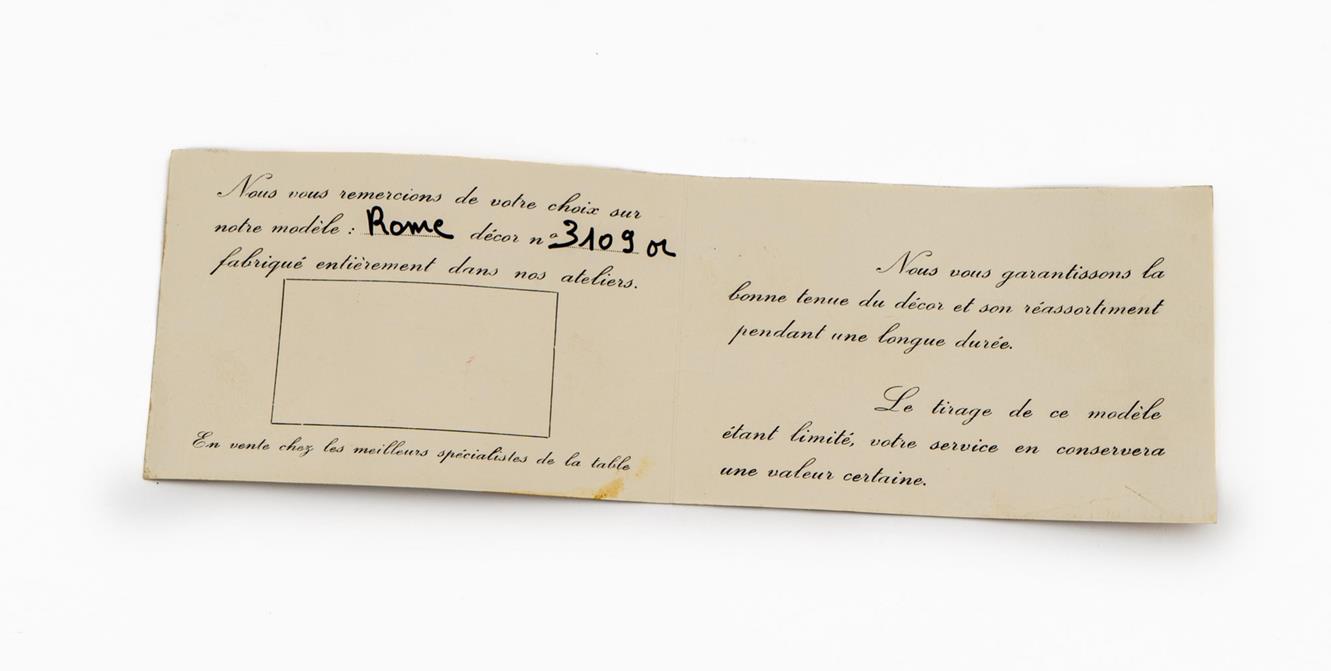 Nous vous remercions de votre choix sur
notre modèle : Rome décor n° 3109 or
fabriqué entièrement dans nos ateliers.
En vente chez les meilleurs spécialistes de la table
Nous vous garantissons la
bonne tenue du décor et son réassortiment
pendant une longue durée.
Le tirage de ce modèle
étant limité, votre service en conservera
une valeur certaine.